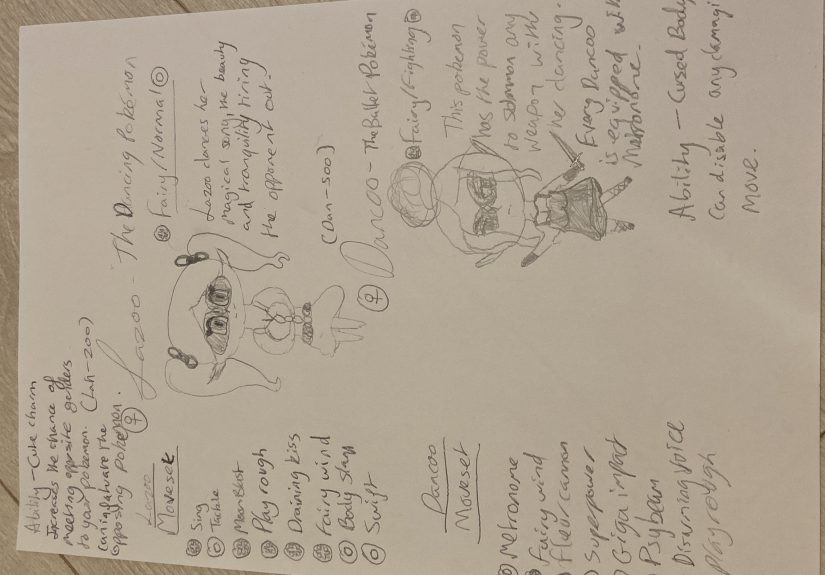 Ability - Cute charm
Increases the chance of
meeting opposite genders
to your pokemon.
Can infatuate the
opposing pokemon.
(Lah-zoo)
Lazoo - The Dancing Pokémon
Fairy/Normal
Lazoo dances her
magical song, the beauty
and tranquility tiring
the opponent out.
Lazoo
Moveset
Sing
Tackle
Moon Blast
Play rough
Draining kiss
Fairy wind
Body slam
Swift
(Dan-soo)
Dancoo - The Ballet Pokémon
Fairy/Fighting
This pokemon
has the power
to summon any
weapon with
her dancing.
Every Dancoo
is equipped with
Metronome.
Ability - Cursed Body
Can disable any damagi
move.
Dancoo
Moveset
Metronome
Fairy wind
Fleur cannon
Superpower
Giga impact
Psybeam
Disarming voice
play rough